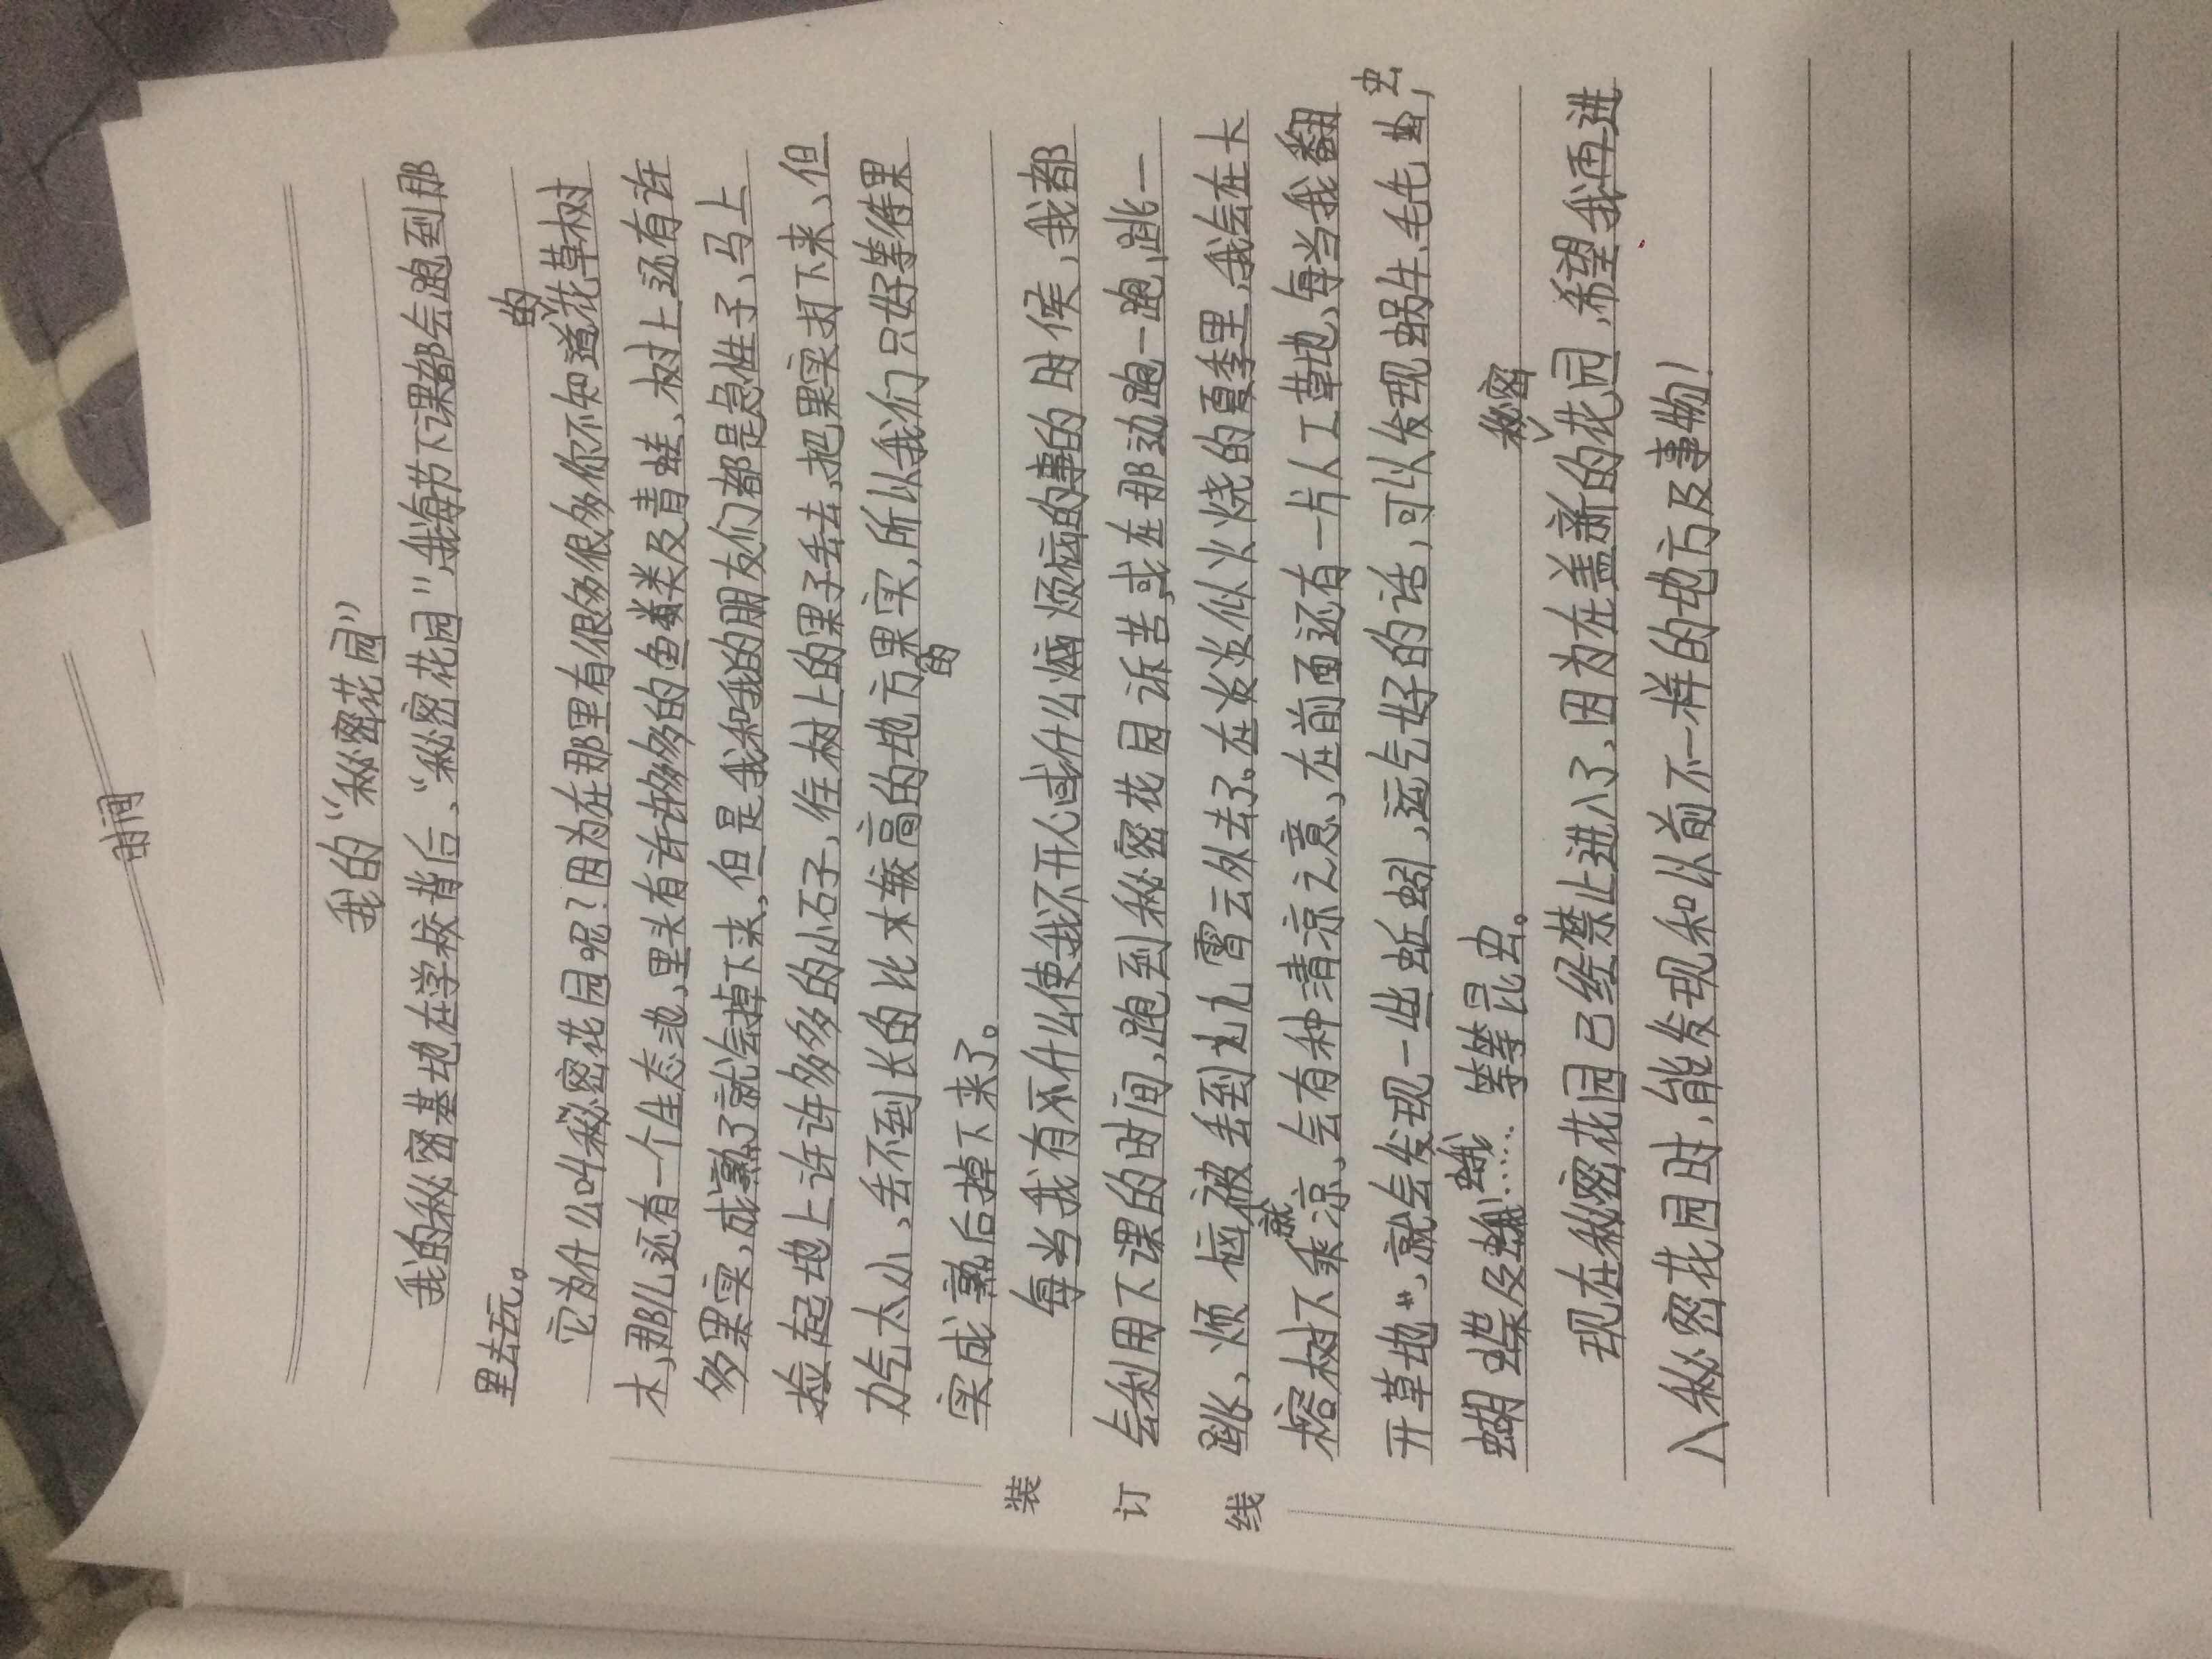 时间
我的“秘密花园”
我的秘密基地在学校背后、“秘密花园”,我每节下课都会跑到那
里去玩。
它为什么叫秘密花园呢?因为在那里有很多很多你不知道的花草树
木,那儿还有一个生态池,里头有许多的鱼类及青蛙、树上还有许
多果实,成熟了就会掉下来,但是我和我的朋友们都是急性子、马上
捡起地上许许多多的小石子,往树上的果子丢去,把果实打下来、但
力气太小,丢不到长的比较高的地方的果实,所以我们只好等待果
实成熟后掉下来了。
每当我有不什么使我不开心或什么烦恼的事的时侯、我都
会利用下课的时间,跑到秘密花园诉苦,或在那边跑一跑,跳一
跳、烦恼就被丢到九霄云外去了。在炎炎似火烧的夏季里,我会在大
榕树下乘凉、会有种清凉之意、在前面还有一片人工草地、每当我翻
开草地,就会发现一些蚯蚓,运气好的话,可以发现蜗牛、毛毛虫,
蝴蝶及蛾……等等昆虫。
现在秘密花园已经禁止进入了、因为在盖新的秘密花园,希望我再进
入秘密花园时,能发现和以前不一样的地方及事物!
装
订
线